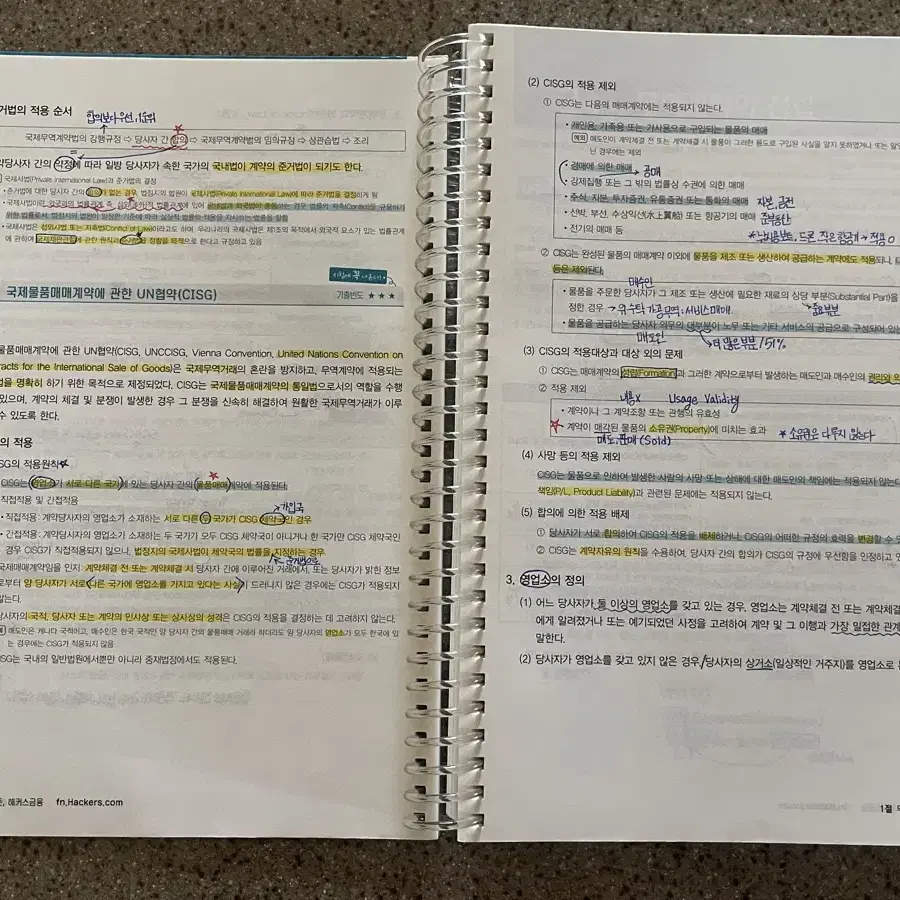 거법의 적용 순서
합의보다 우선, 1순위
국제무역계약법의 강행규정 ⇨ 당사자 간 합의 ⇨ 국제무역계약법의 임의규정 ⇨ 상관습법 ⇨ 조리
약당사자 간의 약정에 따라 일방 당사자가 속한 국가의 국내법이 계약의 준거법이 되기도 한다.
국제사법(Private International Law)과 준거법의 결정
• 준거법에 대한 당사자 간의 합의가 없는 경우 법정지의 법원이 국제사법(Private International Law)에 따라 준거법을 결정하게 됨
위한 법률로서, 법정지의 법원이 일정한 기준에 따라 실질적 법률의 적용을 지시하는 법률을 말함
• 국제사법은 섭외사법 또는 저촉법(Conflict of Law)이라고도 하며, 우리나라의 국제사법은 제1조의 목적에서 외국적 요소가 있는 법률관계
에 관하여 국제재판관할에 관한 원칙과 준거법을 정함을 목적으로 한다고 규정하고 있음
시험에 꼭 나온다!
국제물품매매계약에 관한 UN협약(CISG)
기출빈도 ★★★
물품매매계약에 관한 UN협약(CISG, UNCCISG, Vienna Convention, United Nations Convention on
racts for the International Sale of Goods)은 국제무역거래의 혼란을 방지하고, 무역계약에 적용되는
법을 명확히 하기 위한 목적으로 제정되었다. CISG는 국제물품매매계약의 통일법으로서의 역할을 수행
있으며, 계약의 체결 및 분쟁이 발생한 경우 그 분쟁을 신속히 해결하여 원활한 국제무역거래가 이루
수 있도록 한다.
의 적용
SG의 적용원칙★
CISG는 영업소가 서로 다른 국가에 있는 당사자 간의 물품매매계약에 적용된다.
직접적용 및 간접적용
가입국
• 직접적용: 계약당사자의 영업소가 소재하는 서로 다른 두 국가가 CISG 체약국인 경우
• 간접적용: 계약당사자의 영업소가 소재하는 두 국가가 모두 CISG 체약국이 아니거나 한 국가만 CISG 체약국인
경우 CISG가 직접적용되지 않으나, 법정지의 국제사법이 체약국의 법률을 지정하는 경우
준거법으로
국제매매계약임을 인지: 계약체결 전 또는 계약체결 시 당사자 간에 이루어진 거래에서, 또는 당사자가 밝힌 정보
로부터 양 당사자가 서로 다른 국가에 영업소를 가지고 있다는 사실이 드러나지 않은 경우에는 CISG가 적용되지
않는다.
당사자의 국적, 당사자 또는 계약의 민사상 또는 상사상의 성격은 CISG의 적용을 결정하는 데 고려하지 않는다.
예 매도인은 캐나다 국적이고, 매수인은 한국 국적인 양 당사자 간의 물품매매 거래라 하더라도 양 당사자의 영업소가 모두 한국에 있
는 경우에는 CISG가 적용되지 않음
CISG는 국내의 일반법원에서뿐만 아니라 중재법정에서도 적용된다.
해커스금융 fn.Hackers.com
(2) CISG의 적용 제외
① CISG는 다음의 매매계약에는 적용되지 않는다.
• 개인용, 가족용 또는 가사용으로 구입되는 물품의 매매
예외 매도인이 계약체결 전 또는 계약체결 시 물품이 그러한 용도로 구입된 사실을 알지 못하였거나 또는 알
닌 경우에는 제외
• 경매에 의한 매매 → 공매
• 강제집행 또는 그 밖의 법률상 수권에 의한 매매
• 주식, 지분, 투자증권, 유통증권 또는 통화의 매매 자본, 금전
• 선박, 부선, 수상익선(水上翼船) 또는 항공기의 매매 준부동산
• 전기의 매매 등
드론, 작은항공기 → 적용 O
② CISG는 완성된 물품의 매매계약 이외에 물품을 제조 또는 생산하여 공급하는 계약에도 적용되나,
등은 제외된다.
매수인
• 물품을 주문한 당사자가 그 제조 또는 생산에 필요한 재료의 상당 부분(Substantial Part)을
정한 경우 → 위수탁가공무역 : 서비스매매 중요부분
• 물품을 공급하는 당사자 의무의 대부분이 노무 또는 기타 서비스의 공급으로 구성되어 있는
매도인 → 더 많은 부분 / 51%
(3) CISG의 적용대상과 대상 외의 문제
① CISG는 매매계약의 성립(Formation)과 그러한 계약으로부터 발생하는 매도인과 매수인의 권리와 의
② 적용 제외
내용X Usage Validity
• 계약이나 그 계약조항 또는 관행의 유효성
• 계약이 매각된 물품의 소유권(Property)에 미치는 효과
매도, 판매 (Sold) * 소유권은 다루지 않는다
(4) 사망 등의 적용 제외
CISG는 물품으로 인하여 발생한 사람의 사망 또는 상해에 대한 매도인의 책임에는 적용되지 않는다
책임(P/L, Product Liability)과 관련된 문제에는 적용되지 않는다.
(5) 합의에 의한 적용 배제
① 당사자가 서로 합의하여 CISG의 적용을 배제하거나, CISG의 어떠한 규정의 효력을 변경할 수
② CISG는 계약자유의 원칙을 수용하여, 당사자 간의 합의가 CISG의 규정에 우선함을 인정하고
3. 영업소의 정의
(1) 어느 당사자가 둘 이상의 영업소를 갖고 있는 경우, 영업소는 계약체결 전 또는 계약체결
에게 알려졌거나 또는 예기되었던 사정을 고려하여 계약 및 그 이행과 가장 밀접한 관계
말한다.
(2) 당사자가 영업소를 갖고 있지 않은 경우/당사자의 상거소(일상적인 거주지)를 영업소로
1절